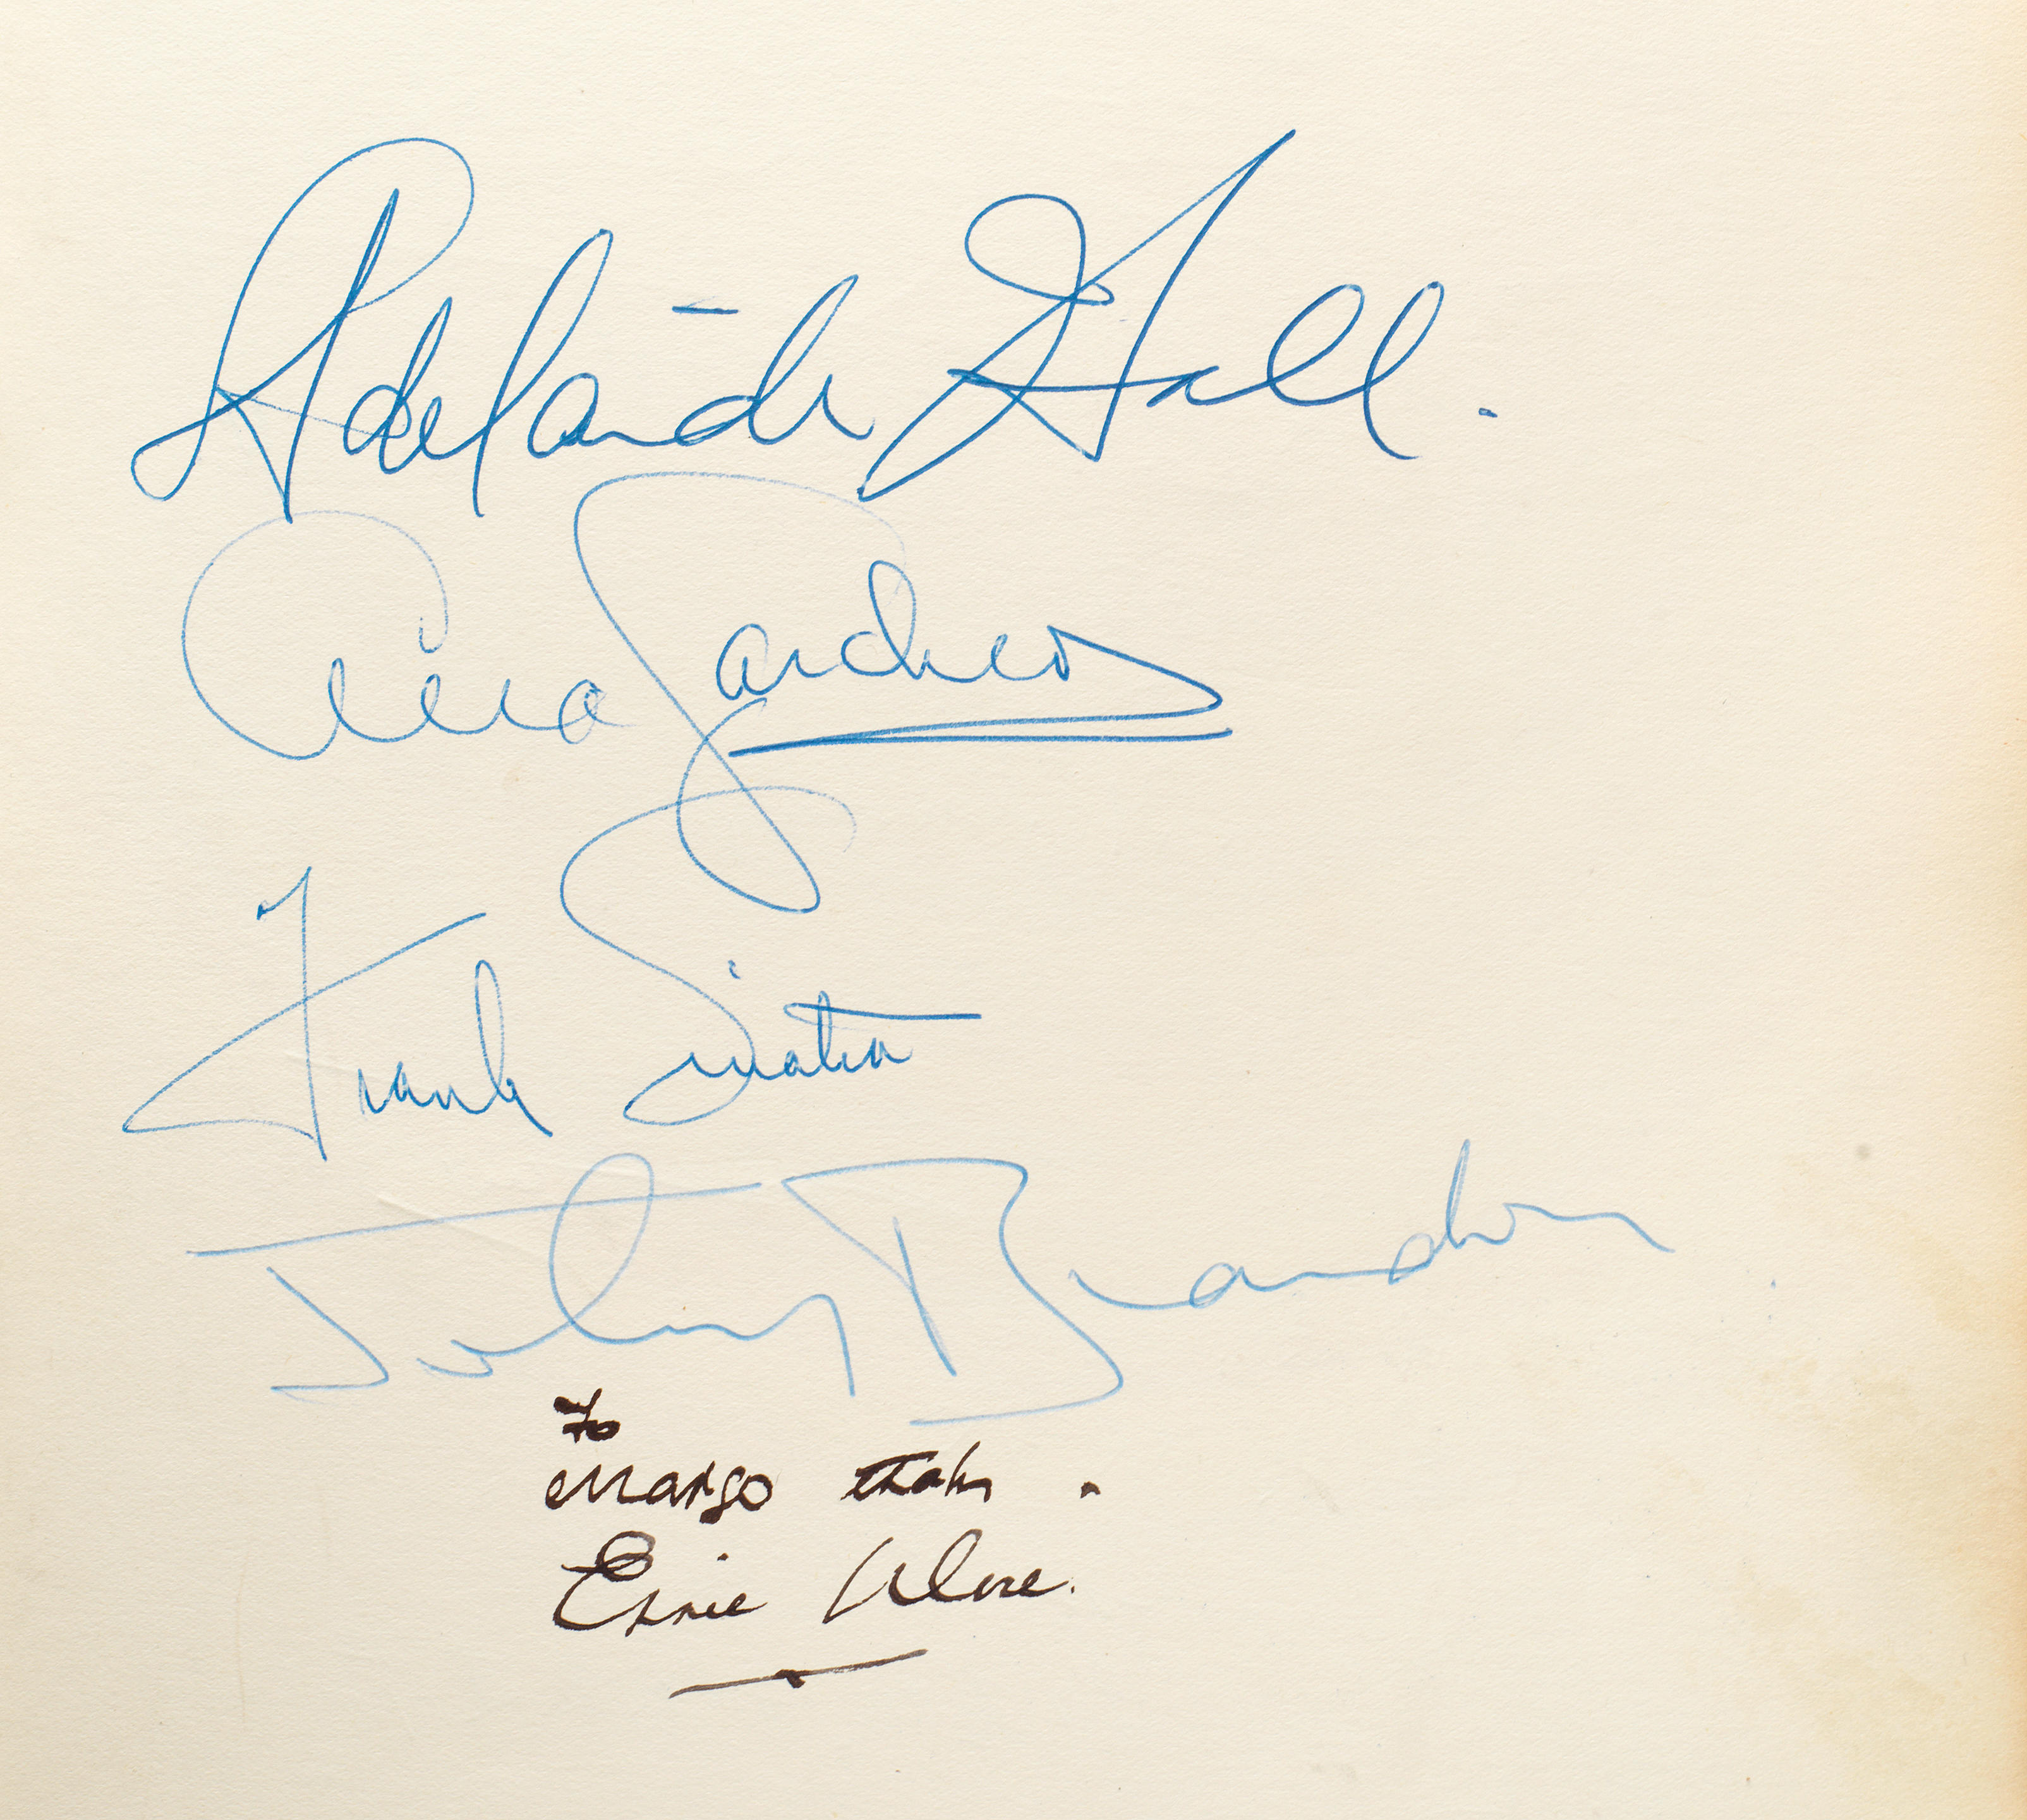 Adelaide Hall.
Ava Gardner
Frank Sinatra
Johnny Brandon
To
Margo thanks.
Ernie